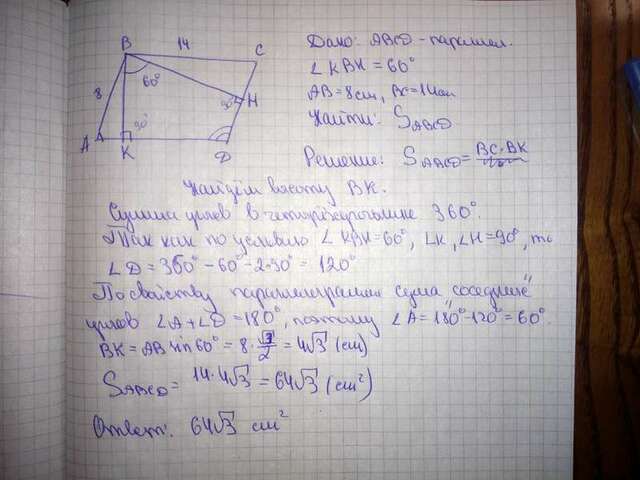 B 14 C
60°
8
90° H
90°
A K D
Дано: ABCD - параллел.
∠KBH = 60°
AB = 8 см, BC = 14 см
Найти: S ABCD
Решение: S ABCD = BC · BK
Найдём высоту BK.
Сумма углов в четырёхугольнике 360°.
Так как по условию ∠KBH = 60°, ∠K, ∠H = 90°, то
∠D = 360° - 60° - 2·90° = 120°
По свойству параллелограмма сумма "соседних"
углов ∠A + ∠D = 180°, поэтому ∠A = 180° - 120° = 60°.
BK = AB sin 60° = 8 · √3/2 = 4√3 (см)
S ABCD = 14 · 4√3 = 64√3 (см²)
Ответ: 64√3 см²